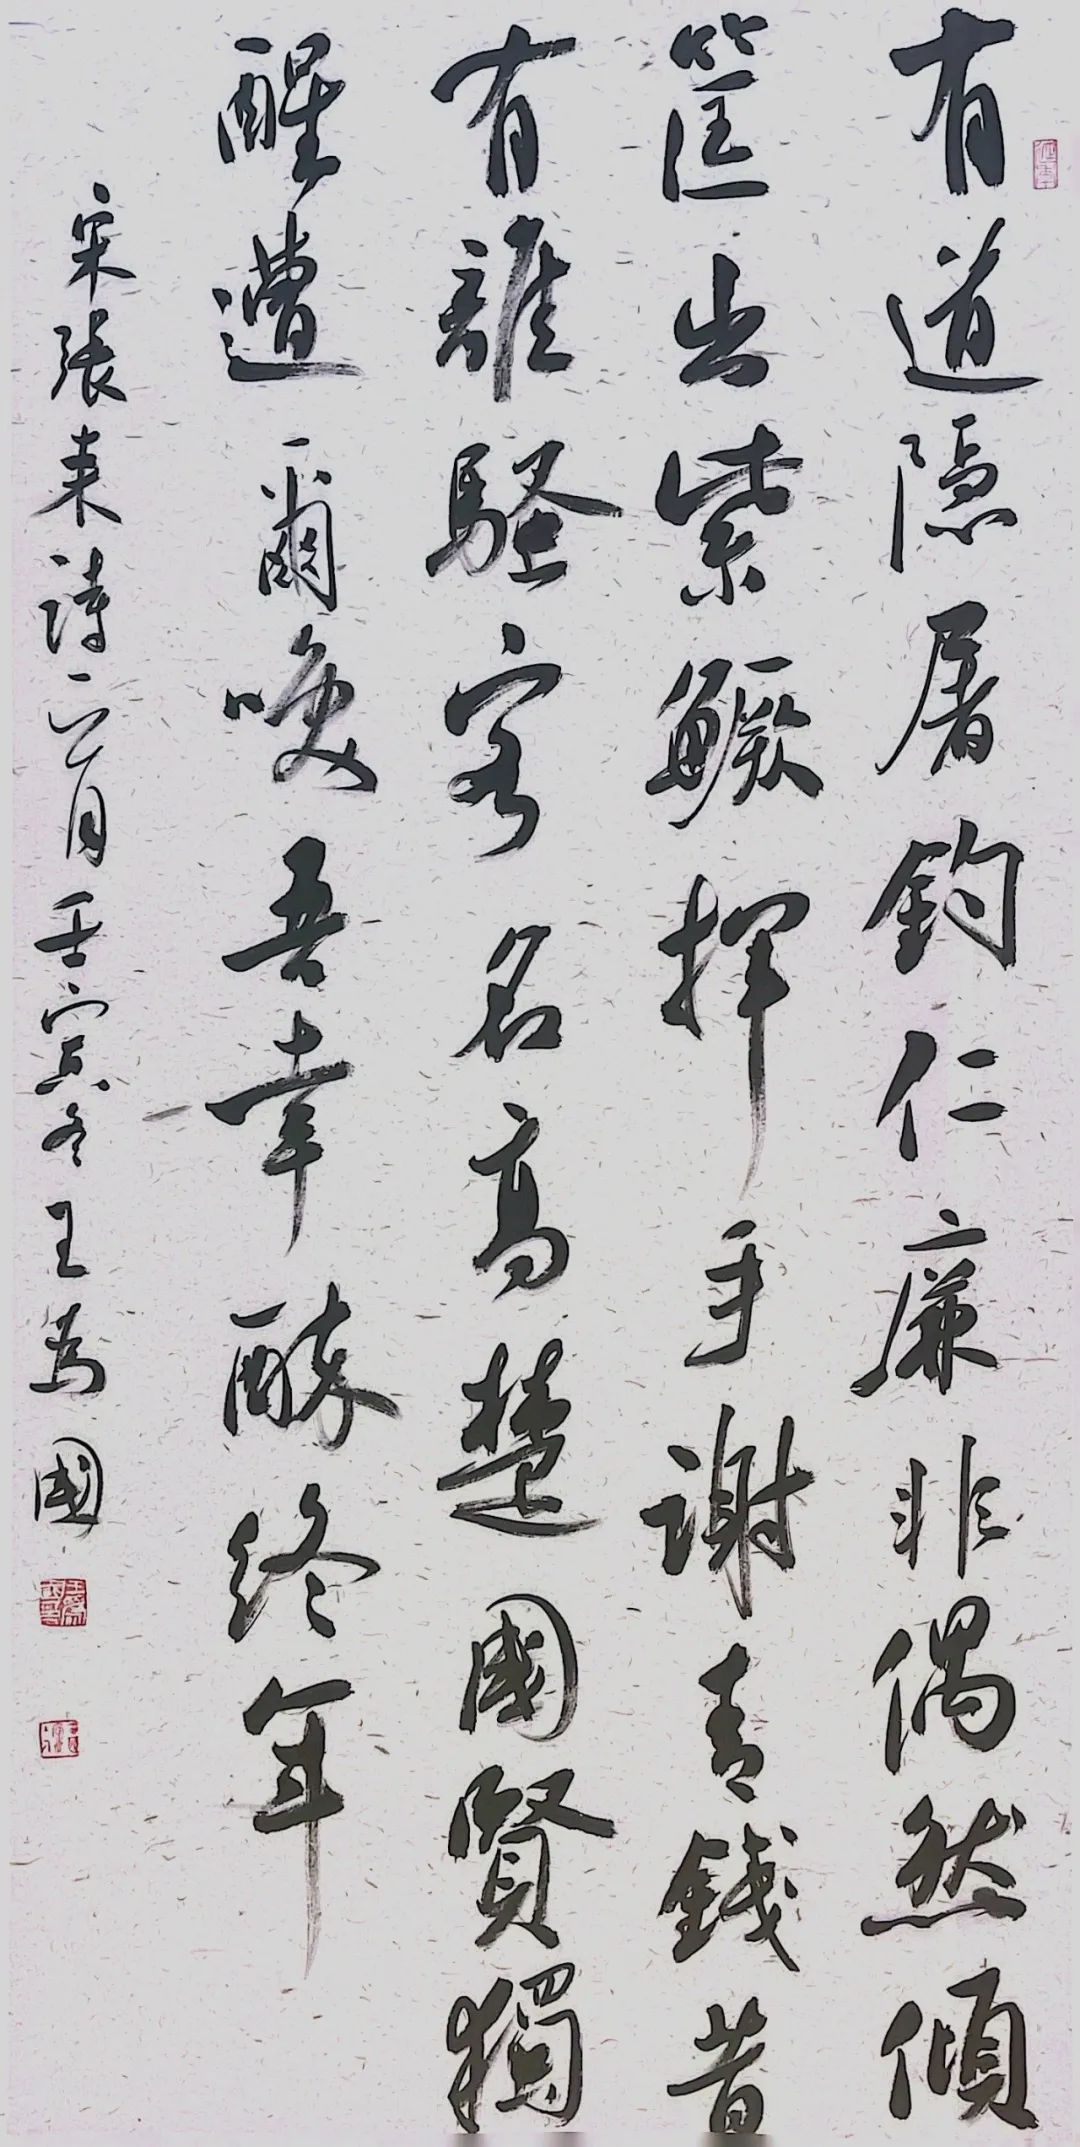 有道隱屠釣仁廉非偶然傾
筐出紫鱖揮手謝青錢昔
有離騷客名高楚國賢獨
醒遭爾喚吾幸醉終年
宋張耒詩一首壬寅冬王為國